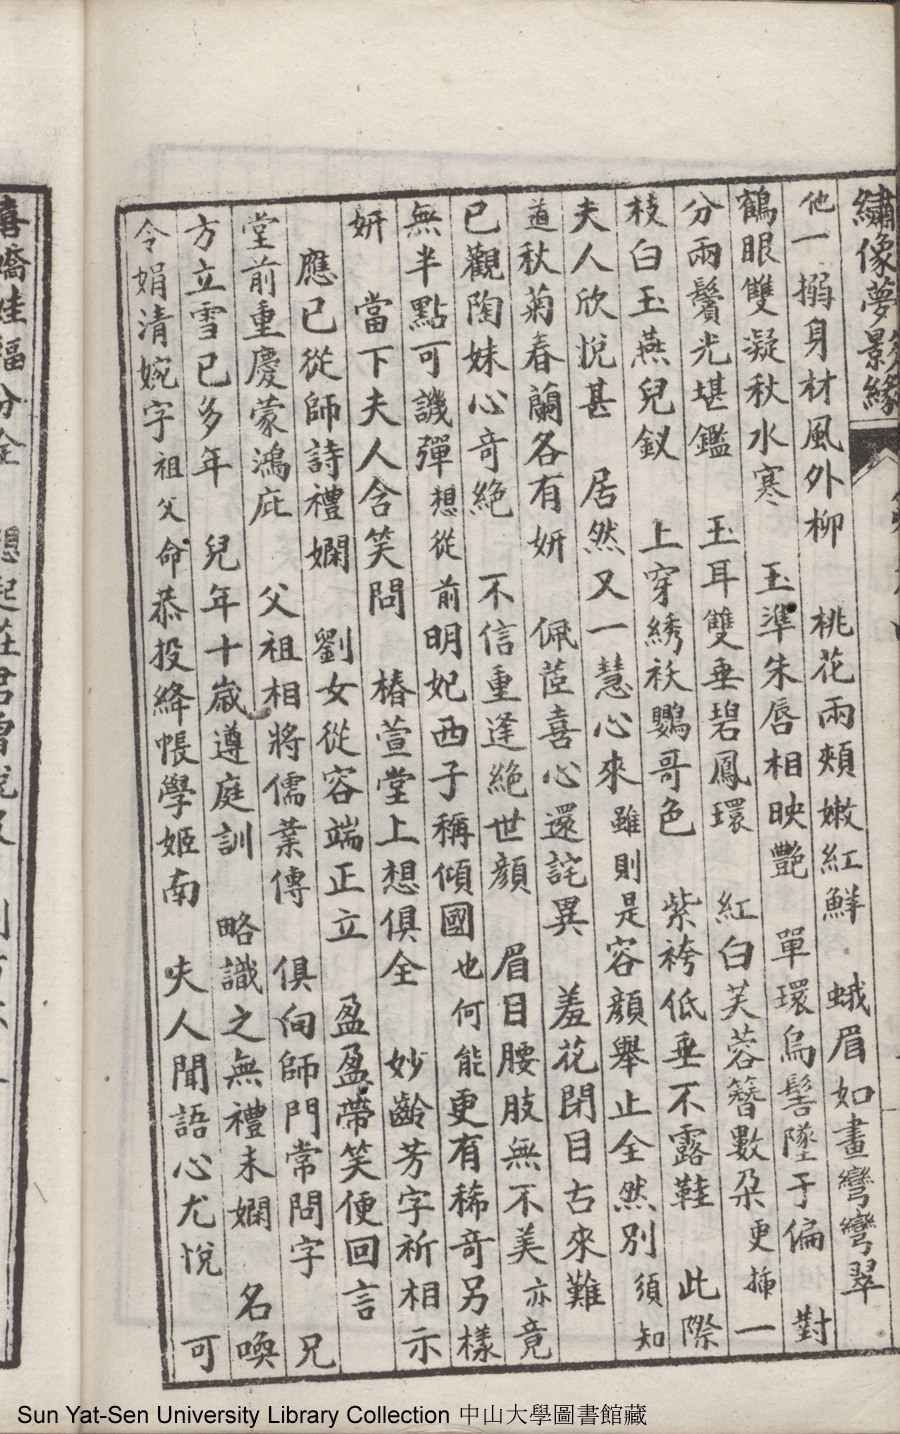 繡像夢景緣
他一搦身材風外柳　桃花兩頰嫩紅鮮　蛾眉如畫彎彎翠
鶴眼雙凝秋水寒　玉準朱唇相映艷　單環烏髻墜于偏　對
分兩鬢光堪鑑　玉耳雙垂碧鳳環　紅白芙蓉簪數朵更揷一
枝白玉燕兒釵　上穿綉袄鸚哥色　紫袴低垂不露鞋　此際
夫人欣悅甚　居然又一慧心來雖則是容顏舉止全然別須知
道秋菊春蘭各有妍　佩茝喜心還詫異　羞花閉目古來難
已觀陶妹心奇絕　不信重逢絕世顏　眉目腰肢無不美亦竟
無半點可譏彈想從前明妃西子稱傾國也何能更有稀奇另樣
妍　當下夫人含笑問　椿萱堂上想俱全　妙齡芳字祈相示
應已從師詩禮嫻　劉女從容端正立　盈盈帶笑便回言
堂前重慶蒙鴻庇　父祖相將儒業傳　俱向師門常問字　兄
方立雪已多年　兒年十歲遵庭訓　略識之無禮未嫻　名喚
令娟清婉字祖父命恭投絳帳學姬南　夫人聞語心尤悅　可
Sun Yat-Sen University Library Collection 中山大學圖書館藏